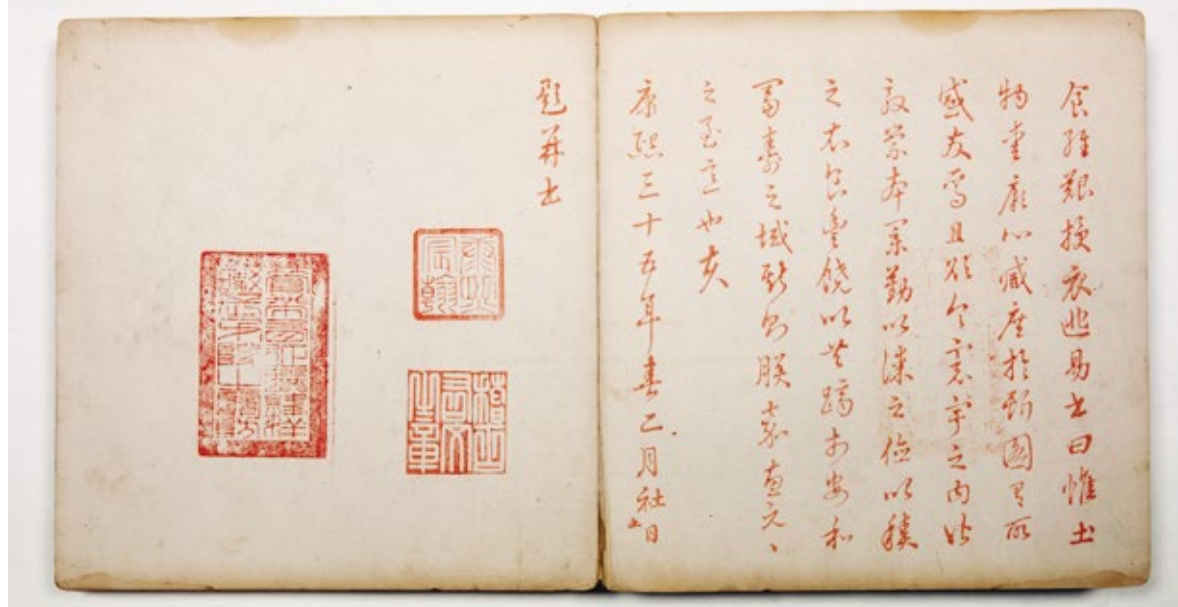 食維艱授衣匪易書曰惟土
物愛厥心臧庶於斯圖有所
感發焉且欲令寰宇之内皆
敦崇本業勤以謀之儉以積
之衣食豐饒以共躋於安和
富壽之域斯則朕嘉惠元〻
之至意也夫
康熙三十五年春二月社日
題并書
康熙宸翰
稽古右文之章